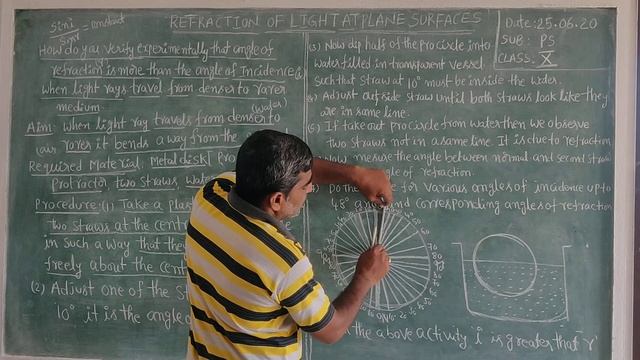 sini/sinr = constant
REFRACTION OF LIGHT AT PLANE SURFACES
Date: 25.06.20
SUB: PS
CLASS: X
How do you verify experimentally that angle of
refraction is more than the angle of Incidence (i)
when light rays travel from denser to rarer
medium.
Aim: when light ray travels from denser to (water)
(air) rarer it bends away from the
Required Material: Metal disk
Protractor, two straws, wat
Procedure: (1) Take a pla
two straws at the cent
in such a way that they
freely about the cent
(2) Adjust one of the s
10° it is the angle o
(3) Now dip half of the procircle into
water filled in transparent vessel
such that straw at 10° must be inside the water.
(4) Adjust outside straw until both straws look like they
are in same line.
(5) If take out procircle from water then we observe
two straws not in a same line. It is due to refraction
Now mesure the angle between normal and second straw
le of refraction.
Do the for various angles of incidence up to
48° and corresponding angles of refraction
the above activity i is greater that 'r'